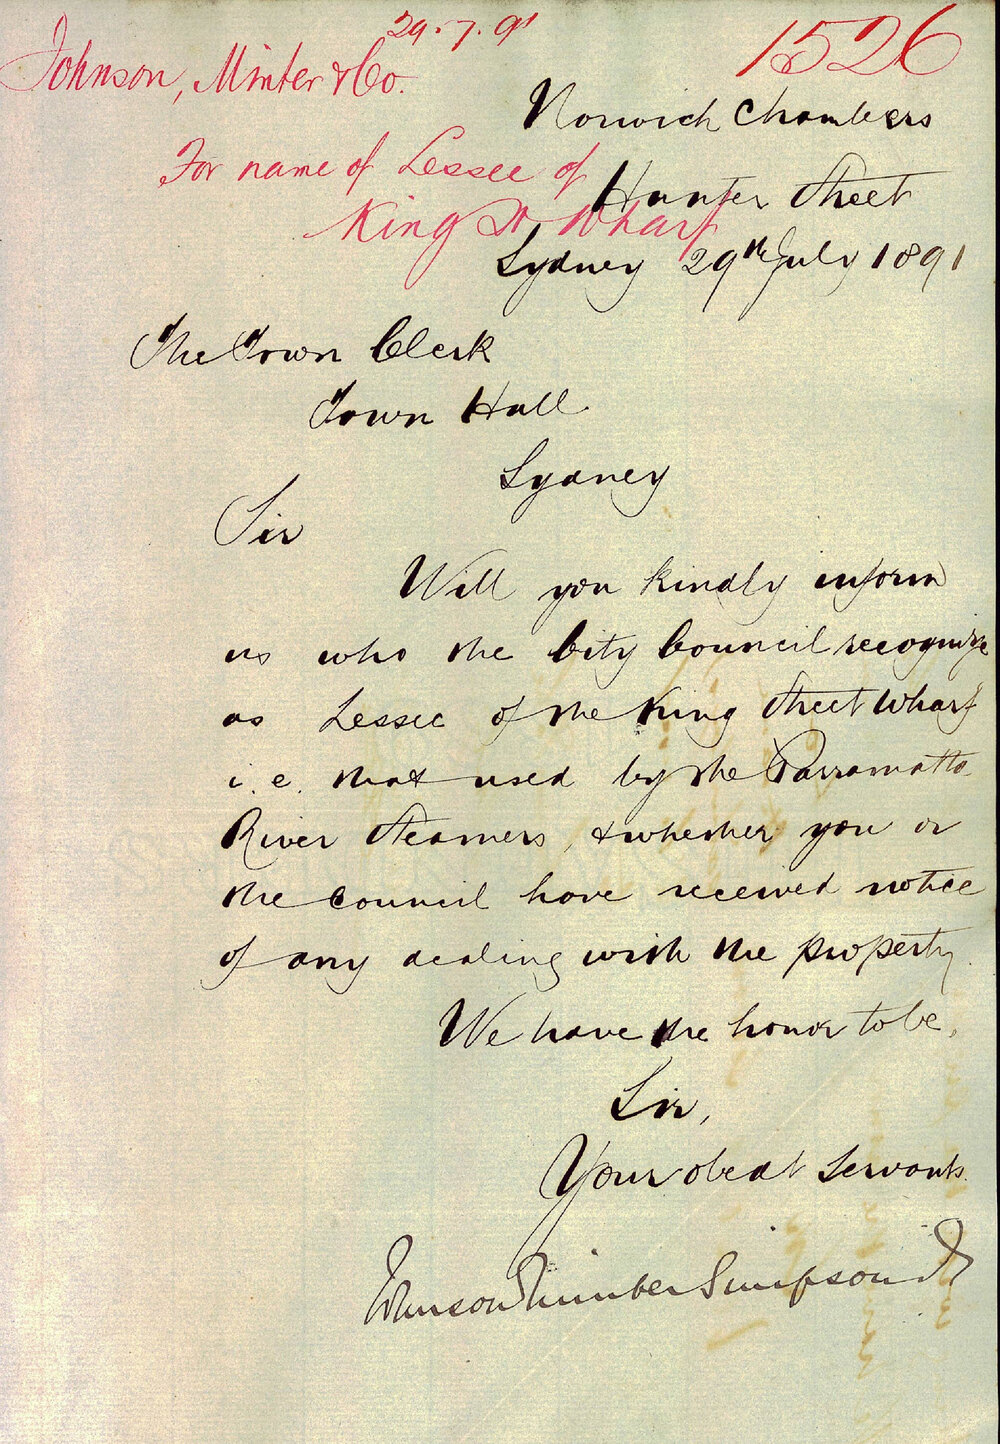 29.7.91
1526
Johnson, Minter & Co.
Norwich Chambers
For name of Lessee of
Hunter Street
King St Wharf
Sydney 29th July 1891
The Town Clerk
Town Hall
Sydney
Sir
Will you kindly inform
us who the City Council recognize
as Lessee of the King Street Wharf
i.e. that used by the Parramatta
River Steamers, & whether you or
the Council have received notice
of any dealing with the property.
We have the honor to be,
Sir,
Your obedt Servants
Johnson Minter Simpson &